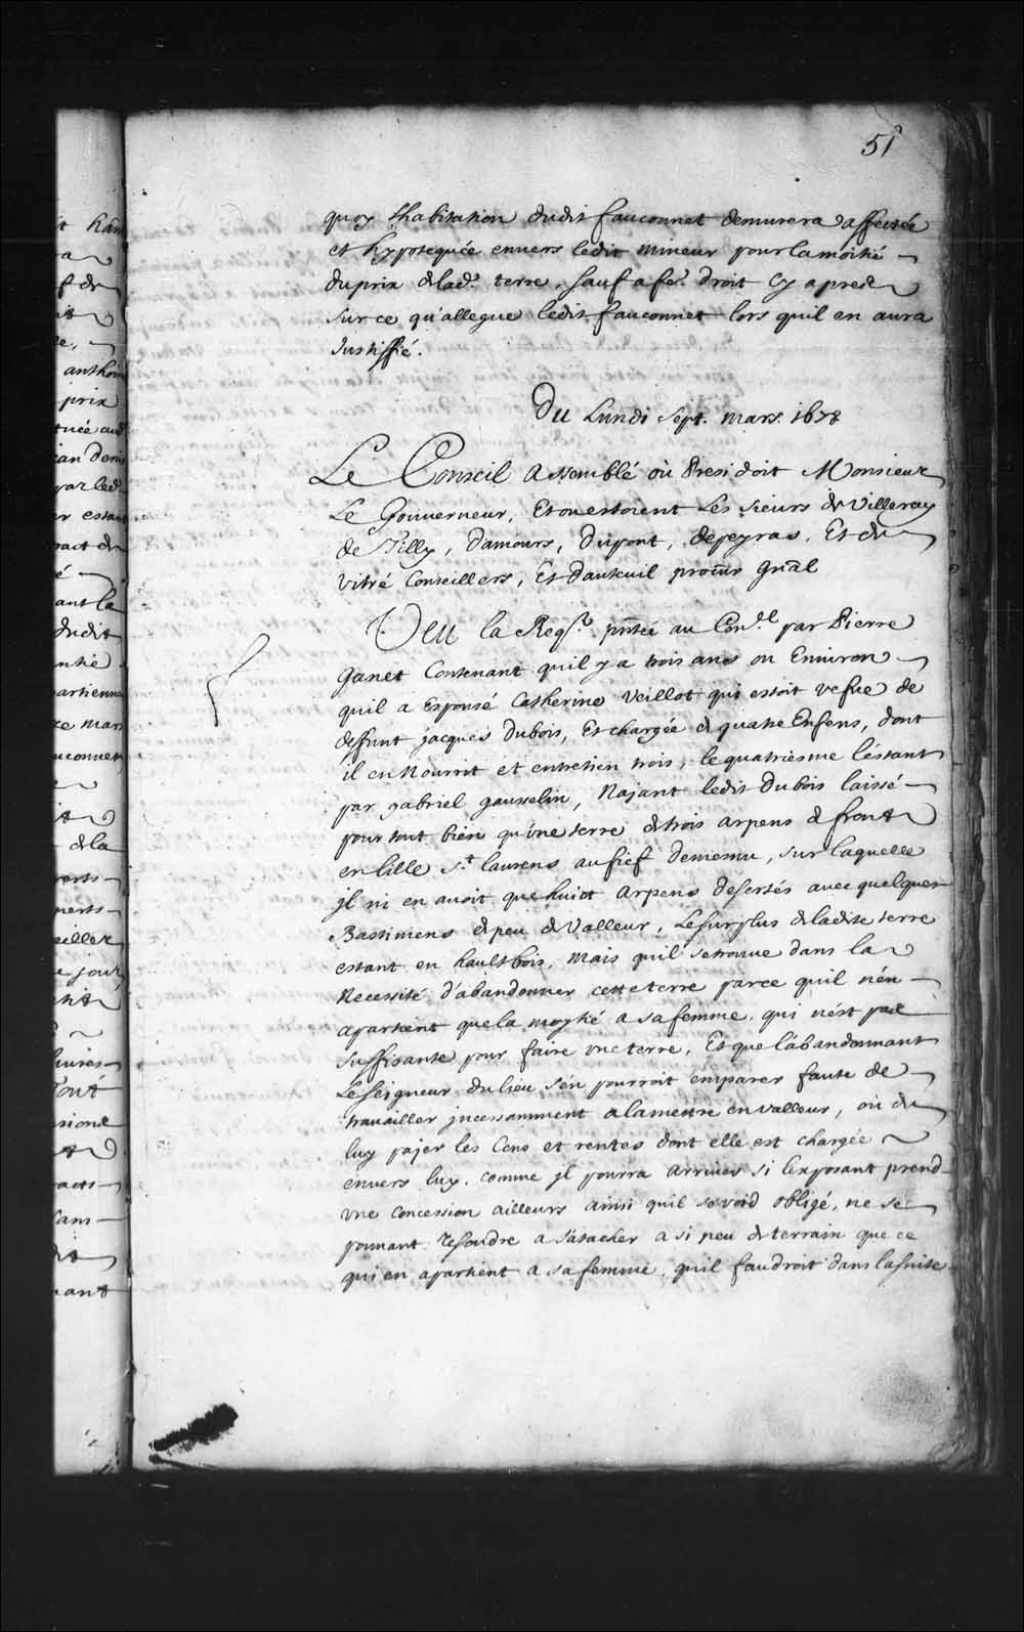 51
quoy l'habitation dudit fauconnet demurera affectée
et hypotequée enuers ledit mineur pour la moitié
du prix de lad.e terre, sauf a fe.e droit cy apres
sur ce qu'allegue ledit fauconnet lors quil en aura
Justiffié.
Du Lundi Sept. mars. 1678
Le Conseil assemblé où Presidoit Monsieur
Le Gouuerneur, Et ou estoient Les sieurs de Villeray
de Tilly, damours, dupont, depeyras, Et de
Vitré Conseillers, Et dauteuil procur gnal
Veu la Req.te pntée au Con.el par Pierre
Ganet Contenant quil y a trois ans ou Enuiron
quil a Espousé Catherine Veillot qui estoit vefue de
deffunt jacques dubois, Et chargée de quatre Enfens, dont
il en Nourrit et entretien trois, le quatriesme l'estant
par gabriel gausselin, Najant ledit dubois laissé
pour tout bien qu'une terre de trois arpens de front
en lille S.t laurens au fief demesnu, sur laquelle
jl ni en auoit que huict arpens desertés auec quelques
Bastimens de peu de Valleur, Le surplus de ladite terre
estant en hault bois, mais quil se trouue dans la
Necessité d'abandonner cette terre parce quil n'en
apartient que la moytié a sa femme, qui n'est pas
suffisante pour faire une terre, Et que l'abandonnant
Le seigneur du lieu s'en pourroit emparer faute de
trauailler jncessamment a la mettre en valleur, ou de
luy pajer les Cens et rentes dont elle est chargée
enuers luy. comme jl pourra arriuer si l'exposant prend
une concession ailleurs ainsi quil se void obligé, ne se
pouuant resoudre a s'atacher a si peu de terrain que ce
qui en apartient a sa femme, quil faudroit dans la suite